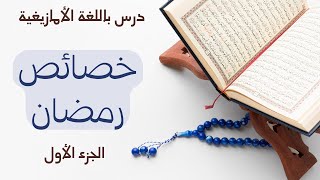 درس باللغة الأمازيغية
خصائص
رمضان
الجزء الأول